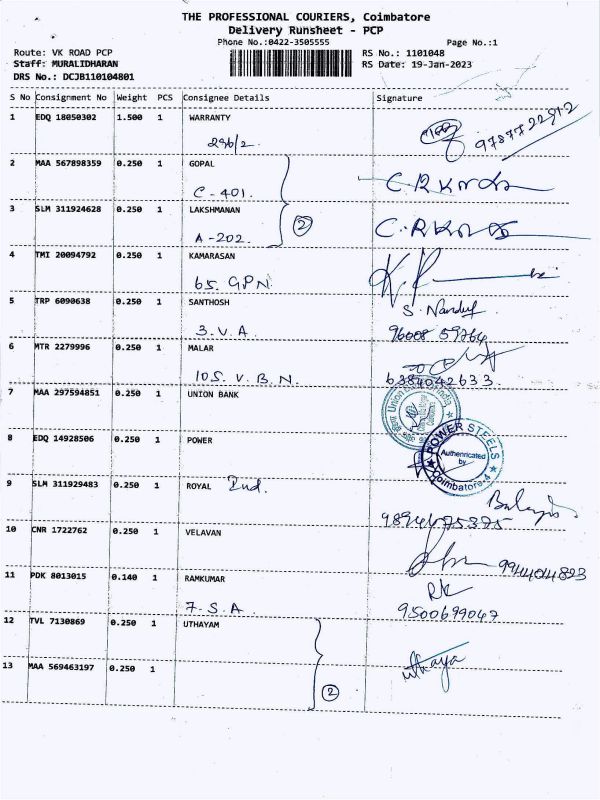 THE PROFESSIONAL COURIERS, Coimbatore
Delivery Runsheet - PCP
Phone No.:0422-3505555
Page No.:1
Route: VK ROAD PCP
Staff: MURALIDHARAN
DRS No.: DCJB110104801
RS No.: 1101048
RS Date: 19-Jan-2023
S No Consignment No Weight PCS Consignee Details Signature
1 EDQ 18050302 1.500 1 WARRANTY
296/2 9787722912
2 MAA 567898359 0.250 1 GOPAL
C-401.
3 SLM 311924628 0.250 1 LAKSHMANAN
A-202. 2
4 TMI 20094792 0.250 1 KAMARASAN
65. GPN
5 TRP 6090638 0.250 1 SANTHOSH
3.V.A. 96008 59764
6 MTR 2279996 0.250 1 MALAR
105. V.B.N. 6384042633
7 MAA 297594851 0.250 1 UNION BANK
8 EDQ 14928506 0.250 1 POWER
POWER STEELS
Authenticated
by
Coimbatore-4
9 SLM 311929483 0.250 1 ROYAL Ind.
9894675375
10 CNR 1722762 0.250 1 VELAVAN
9944014823
11 PDK 8013015 0.140 1 RAMKUMAR RK
7-S.A. 9500699047
12 TVL 7130869 0.250 1 UTHAYAM
uthaya
13 MAA 569463197 0.250 1
2